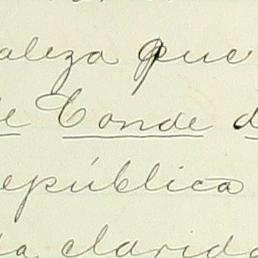 aleza que
de Conde d
epública
da clarida